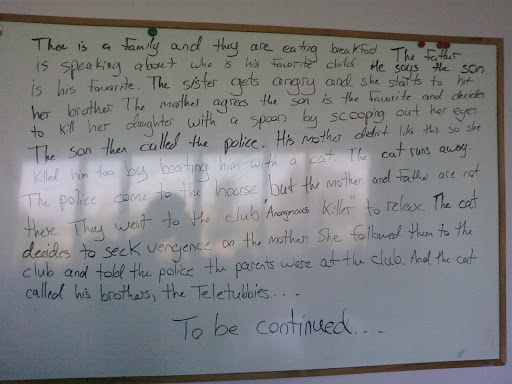 There is a family and they are eating breakfast. The father
is speaking about who is his favorite child. He says the son
is his favorite. The sister gets angry and she starts to hit
her brother. The mother agrees the son is the favorite and decides
to kill her daughter with a spoon by scooping out her eyes
The son then called the police. His mother didn't like this so she
killed him too by beating him with a cat. The cat runs away.
The police come to the house but the mother and father are not
there. They went to the club "Anonymous Killer" to relax. The cat
decides to seek vengence on the mother. She followed them to the
club and told the police the parents were at the club. And the cat
called his brothers, the Teletubbies...
To be continued...